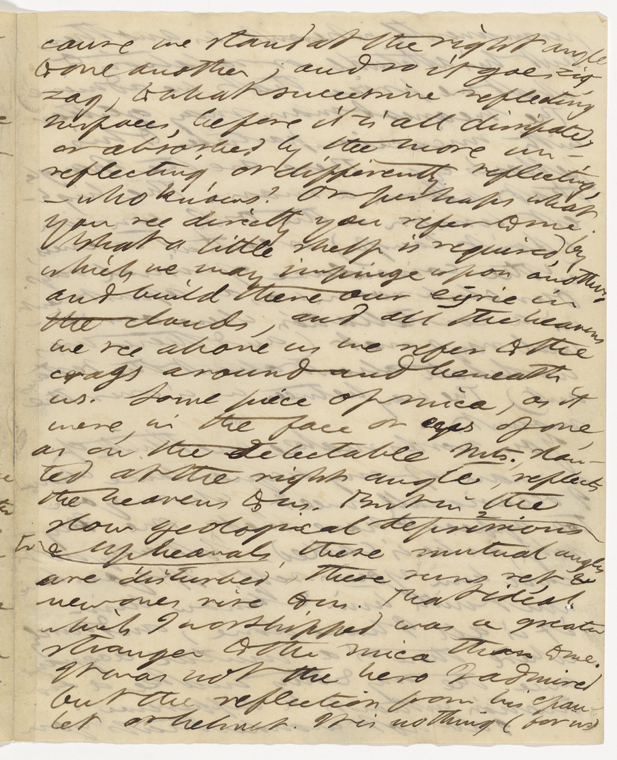 cause we stand at the right angle
to one another; and so it goes zig
zag, to what successive reflecting
surfaces, before it is all dissipated,
or absorbed by the more un-
reflecting, or differently reflecting,
- who knows? Or perhaps what
you see directly you refer to me.
What a little shelf is required, by
which we may impinge upon another,
and build there our eyrie in
the clouds, and all the heavens
we see above us we refer to the
crags around and beneath
us. Some piece of mica, as it
were, in the face or eyes of one,
as on the Delectable Mts. slan-
ted at the right angle, reflects
the heavens to us. But in the
slow geological depressions
& upheavals, these mutual angles
are disturbed, these suns set &
new ones rise to us. That ideal
which I worshipped was a greater
stranger to the mica than to me.
It was not the hero I admired
but the reflection from his epau-
let or helmet. It is nothing (for us)